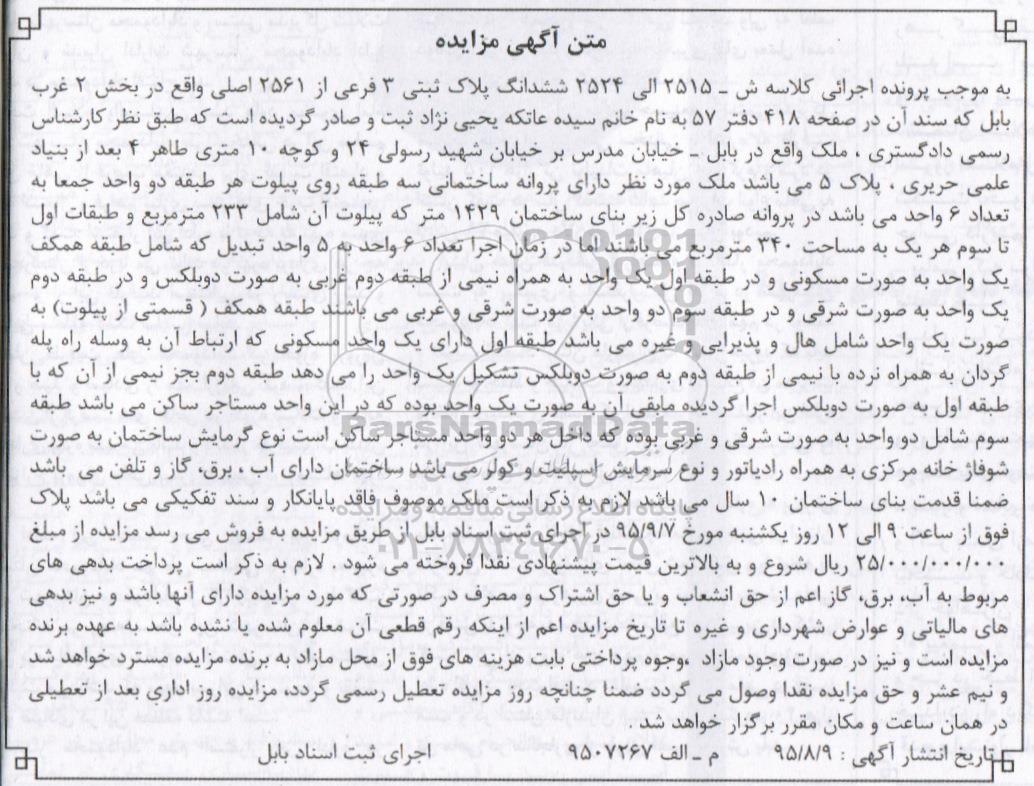 متن آگهی مزایده
به موجب پرونده اجرائی کلاسه ش ـ ۲۵۱۵ الی ۲۵۲۴ ششدانگ پلاک ثبتی ۳ فرعی از ۲۵۶۱ اصلی واقع در بخش ۲ غرب
بابل که سند آن در صفحه ۴۱۸ دفتر ۵۷ به نام خانم سیده عاتکه یحیی نژاد ثبت و صادر گردیده است که طبق نظر کارشناس
رسمی دادگستری ، ملک واقع در بابل ـ خیابان مدرس بر خیابان شهید رسولی ۲۴ و کوچه ۱۰ متری طاهر ۴ بعد از بنیاد
علمی حریری ، پلاک ۵ می باشد ملک مورد نظر دارای پروانه ساختمانی سه طبقه روی پیلوت هر طبقه دو واحد جمعا به
تعداد ۶ واحد می باشد در پروانه صادره کل زیر بنای ساختمان ۱۴۲۹ متر که پیلوت آن شامل ۲۳۳ مترمربع و طبقات اول
تا سوم هر یک به مساحت ۳۴۰ متر مربع می باشند اما در زمان اجرا تعداد ۶ واحد به ۵ واحد تبدیل که شامل طبقه همکف
یک واحد به صورت مسکونی و در طبقه اول یک واحد به همراه نیمی از طبقه دوم غربی به صورت دوبلکس و در طبقه دوم
یک واحد به صورت شرقی و در طبقه سوم دو واحد به صورت شرقی و غربی می باشند طبقه همکف ( قسمتی از پیلوت) به
صورت یک واحد شامل هال و پذیرایی و غیره می باشد طبقه اول دارای یک واحد مسکونی که ارتباط آن به وسله راه پله
گردان به همراه نرده با نیمی از طبقه دوم به صورت دوبلکس تشکیل یک واحد را می دهد طبقه دوم بجز نیمی از آن که با
طبقه اول به صورت دوبلکس اجرا گردیده مابقی آن به صورت یک واحد بوده که در این واحد مستاجر ساکن می باشد طبقه
سوم شامل دو واحد به صورت شرقی و غربی بوده که داخل هر دو واحد مستاجر ساکن است نوع گرمایش ساختمان به صورت
شوفاژ خانه مرکزی به همراه رادیاتور و نوع سرمایش اسپلیت و کولر می باشد ساختمان دارای آب ، برق، گاز و تلفن می باشد
ضمنا قدمت بنای ساختمان ۱۰ سال می باشد لازم به ذکر است ملک موصوف فاقد پایانکار و سند تفکیکی می باشد پلاک
فوق از ساعت ۹ الی ۱۲ روز یکشنبه مورخ ۹۵/۹/۷ در اجرای ثبت اسناد بابل از طریق مزایده به فروش می رسد مزایده از مبلغ
۲۵/۰۰۰/۰۰۰/۰۰۰ ریال شروع و به بالاترین قیمت پیشنهادی نقدا فروخته می شود، لازم به ذکر است پرداخت بدهی های
مربوط به آب، برق، گاز اعم از حق انشعاب و یا حق اشتراک و مصرف در صورتی که مورد مزایده دارای آنها باشد و نیز بدهی
های مالیاتی و عوارض شهرداری و غیره تا تاریخ مزایده اعم از اینکه رقم قطعی آن معلوم شده یا نشده باشد به عهده برنده
مزایده است و نیز در صورت وجود مازاد ،وجوه پرداختی بابت هزینه های فوق از محل مازاد به برنده مزایده مسترد خواهد شد
و نیم عشر و حق مزایده نقدا وصول می گردد ضمنا چنانچه روز مزایده تعطیل رسمی گردد، مزایده روز اداری بعد از تعطیلی
در همان ساعت و مکان مقرر برگزار خواهد شد.
تاریخ انتشار آگهی : ۹۵/۸/۹ م ـ الف ۹۵۰۷۲۶۷ اجرای ثبت اسناد بابل
ParsNamadData
پایگاه اطلاع رسانی مناقصه و مزایده
۰۲۱-۸۸۳۴۹۶۷۰-۵